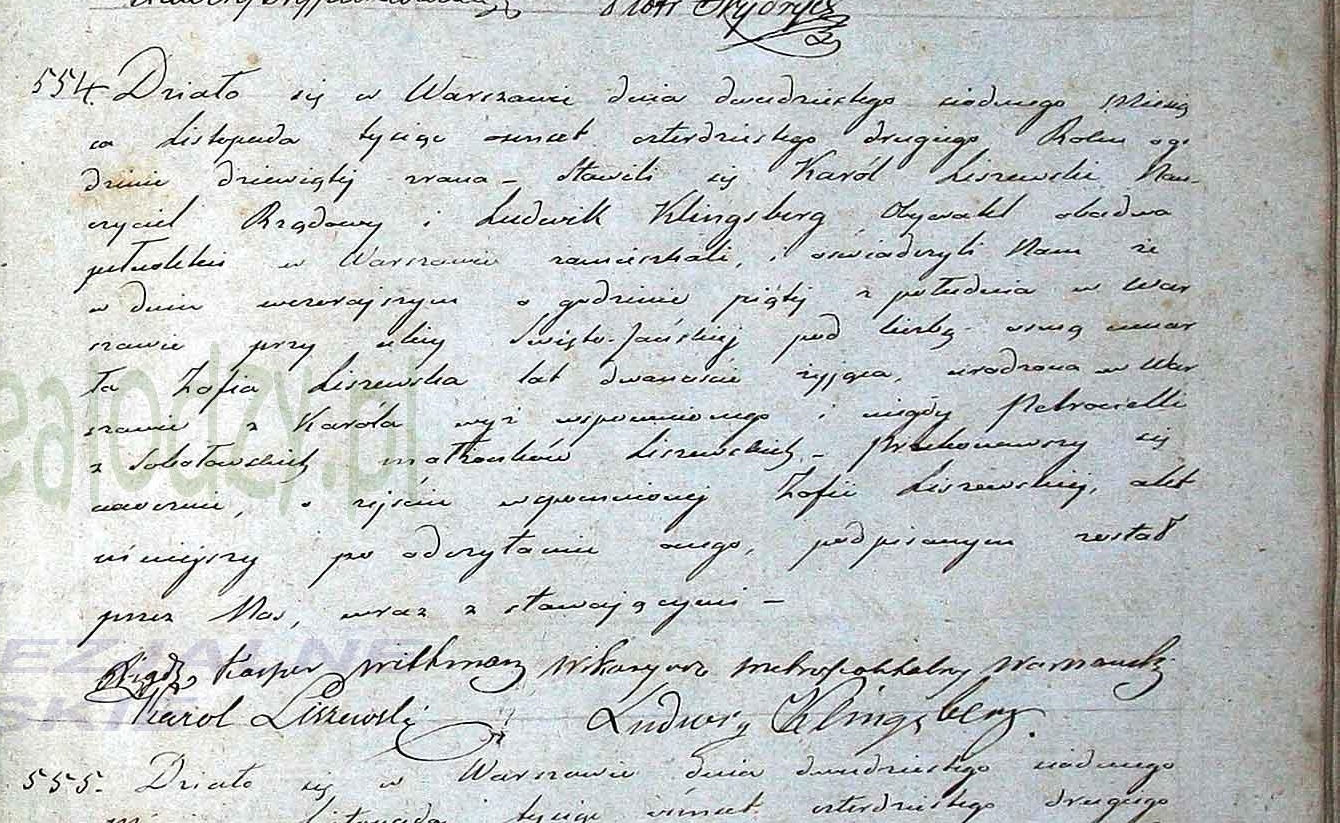 Piotr
554. Działo się w Warszawie dnia dwudziestego siódmego Miesią
ca Listopada tysiąc osmset czterdziestego drugiego Roku o go
dzinie dziewiątej zrana – Stawili się Karól Liszewski Nau-
czyciel Rządowy i Ludwik Klingsberg Obywatel obadwa
pełnoletni w Warszawie zamieszkali, i oświadczyli Nam że
w dniu wczorajszym o godzinie piątej z południa w War
szawie przy ulicy Święto-Jańskiej pod liczbą osmą umar
ła Zofia Liszewska lat dwanaście żyjąca, urodzona w War
szawie z Karóla wyż wspomnionego i niegdy Petronelli
z Sobotowskich małżonków Liszewskich. – Przekonawszy się
naocznie, o zejściu wspomnionej Zofii Liszewskiej, akt
niniejszy po odczytaniu onego, podpisanym został
przez Nas, wraz z stawającymi –
Xiądz Kasper Wittman Wikaryusz Metropolitalny Warszawski
Karol Liszewski Ludwig Klingsberg.
555. Działo się w Warszawie dnia dwudziestego siódmego
Listopada tysiąc osmset czterdziestego drugiego
ealodzy.pl
EZJALNE
SKIE